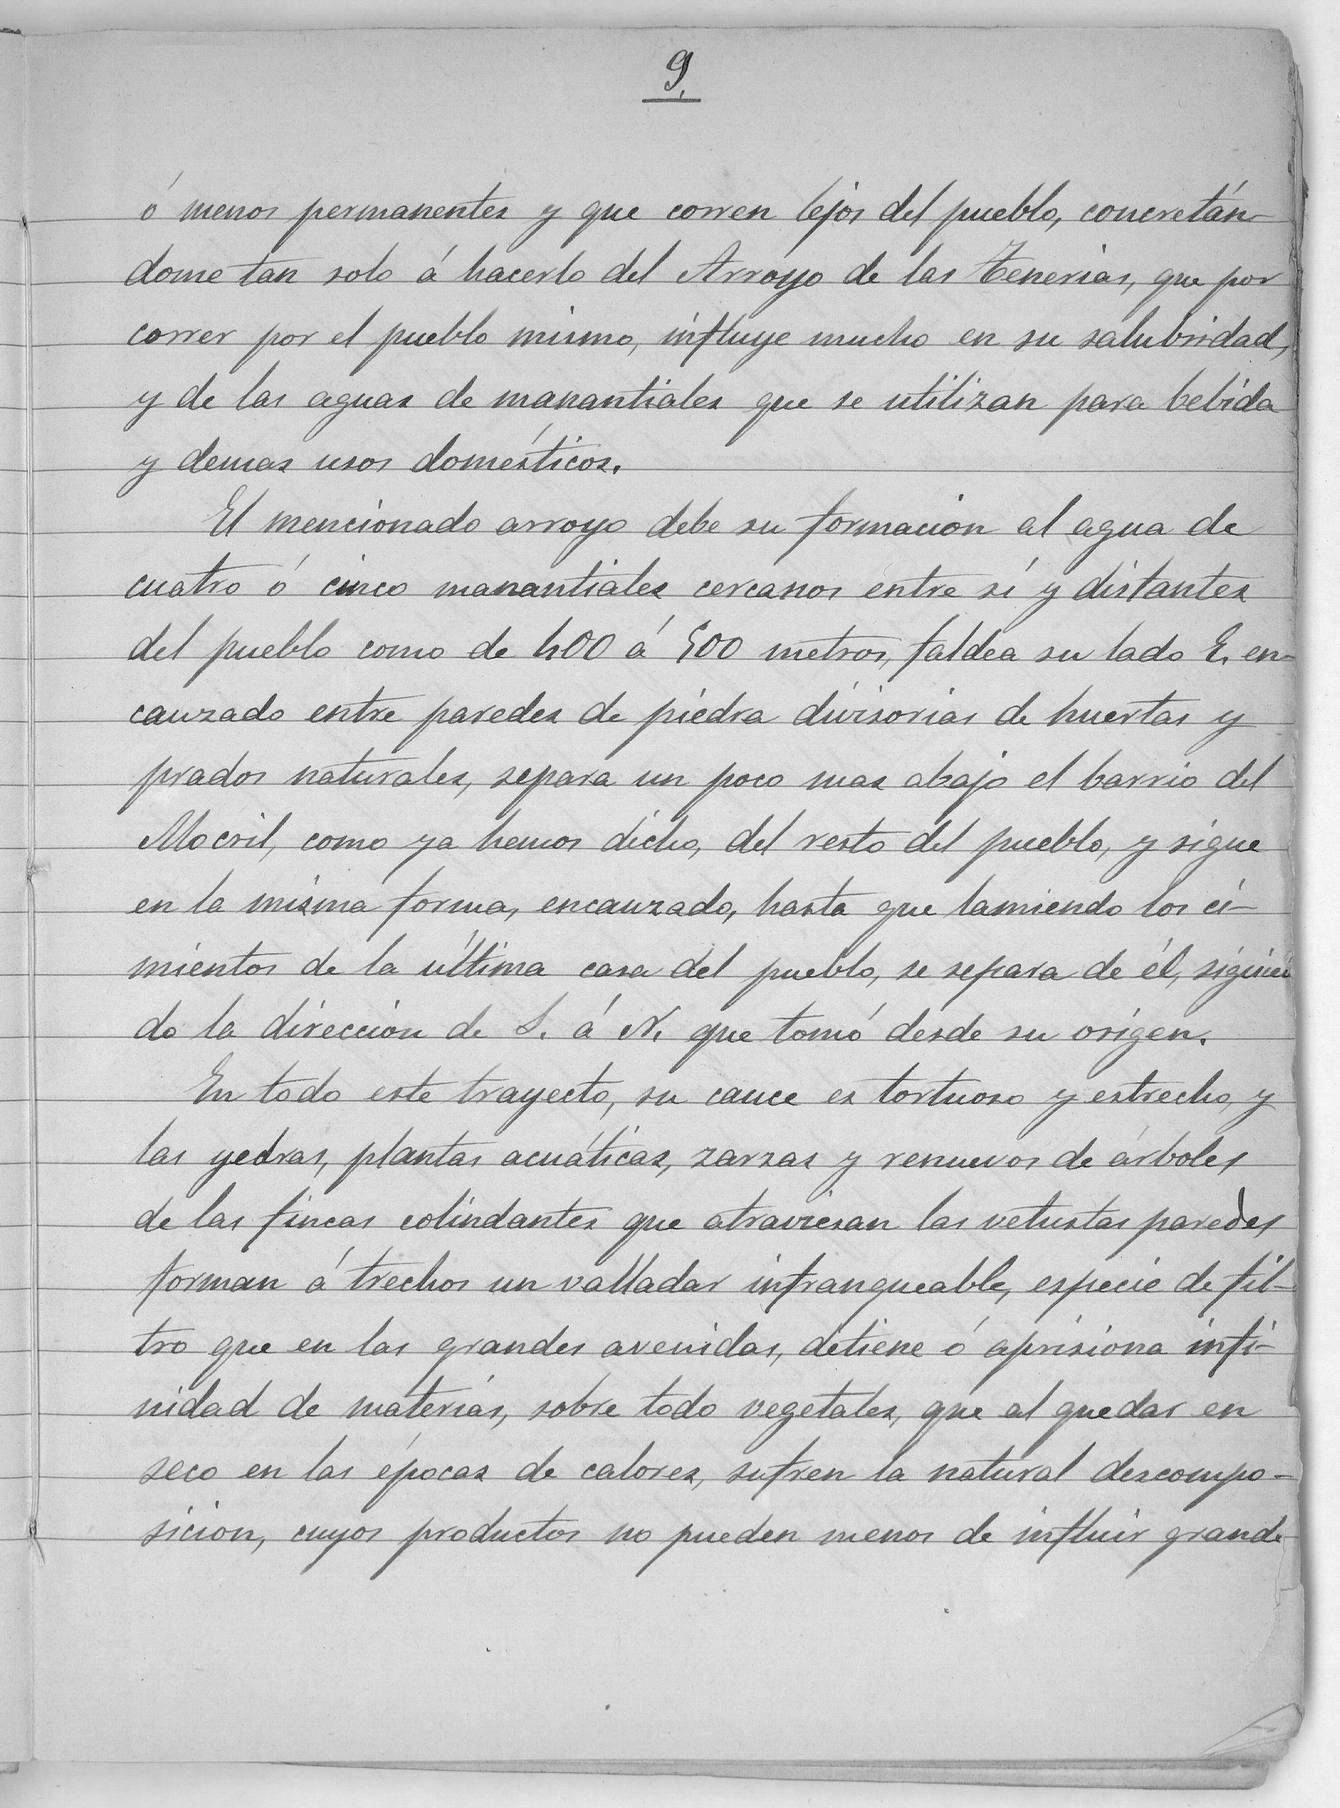 9.
ó menos permanentes y que corren lejos del pueblo, concretán-
dome tan solo á hacerlo del Arroyo de las Tenerias, que por
correr por el pueblo mismo, influye mucho en su salubridad,
y de las aguas de manantiales que se utilizan para bebida
y demas usos domésticos.
El mencionado arroyo debe su formación al agua de
cuatro ó cinco manantiales cercanos entre sí y distantes
del pueblo como de 400 á 500 metros, faldea su lado E. en-
cauzado entre paredes de piedra divisorias de huertas y
prados naturales, separa un poco mas abajo el barrio del
Mocril, como ya hemos dicho, del resto del pueblo, y sigue
en la misma forma, encauzado, hasta que lamiendo los ci-
mientos de la última casa del pueblo, se separa de él, siguien
do la dirección de S. á N. que tomó desde su origen.
En todo este trayecto, su cauce es tortuoso y estrecho, y
las yedras, plantas acuáticas, zarzas y renuevos de árboles
de las fincas colindantes que atraviesan las vetustas paredes,
forman á trechos un valladar infranqueable, especie de fil-
tro que en las grandes avenidas, detiene ó aprisiona infi-
nidad de materias, sobre todo vegetales, que al quedar en
seco en las épocas de calores, sufren la natural descompo-
sicion, cuyos productos no pueden menos de influir grande-